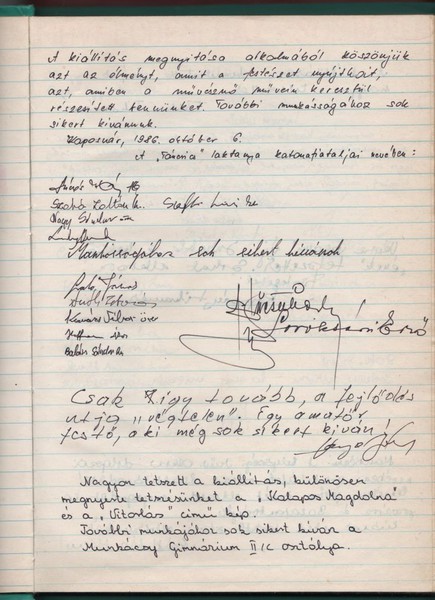 A kiállítás megnyitása alkalmából köszönjük
azt az élményt, amit a festészet nyújthat,
azt, amiben a művésznő művein keresztül
részesített bennünket. További munkásságához sok
sikert kívánunk.
Kaposvár, 1986. október 6.
A „Táncsics" laktanya katonafiataljai nevében:
Szabó Zoltán
Nagy Sándor
Munkásságához sok sikert kívánok
Csak így tovább, a fejlődés
útja „végtelen". Egy amatőr
festő, aki még sok sikert kíván!
Nagyon tetszett a kiállítás, különösen
megnyerte tetszésünket a „Kalapos Magdolna"
és a „Vitorlás" című kép.
További munkájához sok sikert kíván a
Munkácsy Gimnázium II/c osztálya.